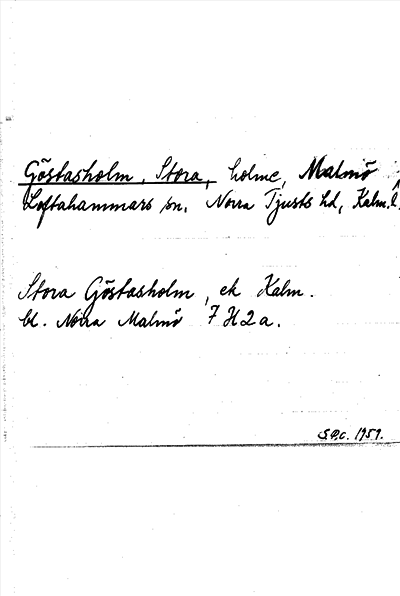 Göstasholm, Stora, holme, Malmö
Loftahammars sn. Norra Tjusts hd, Kalm. l.
Stora Göstasholm, ek Kalm.
bl. Norra Malmö 7 H 2 a.
1959.